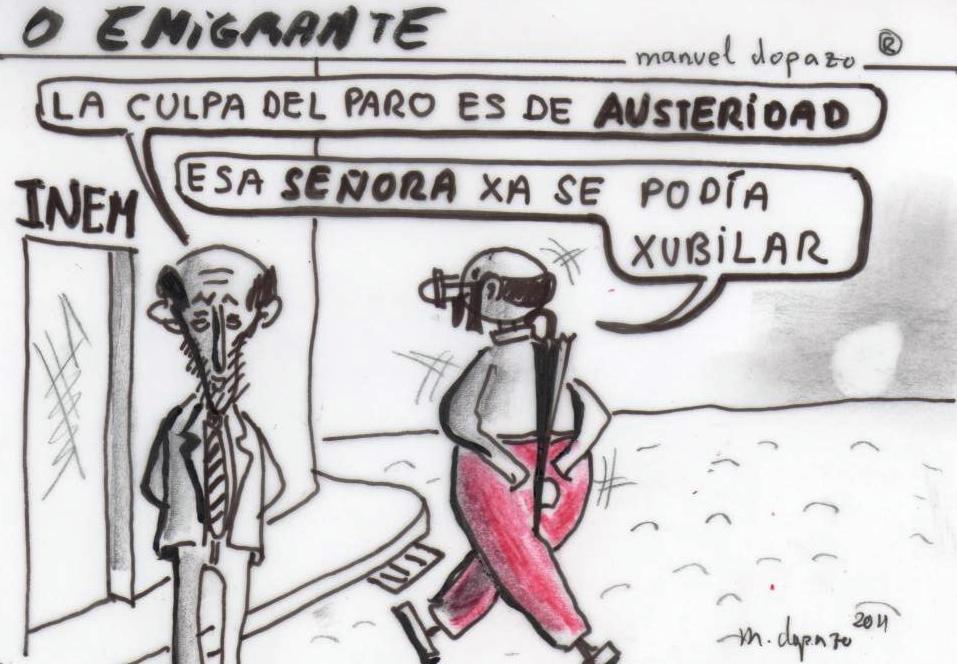 O EMIGRANTE
manuel dopazo ®
LA CULPA DEL PARO ES DE AUSTERIDAD
ESA SEÑORA XA SE PODÍA
XUBILAR
INEM
m. dopazo 2011